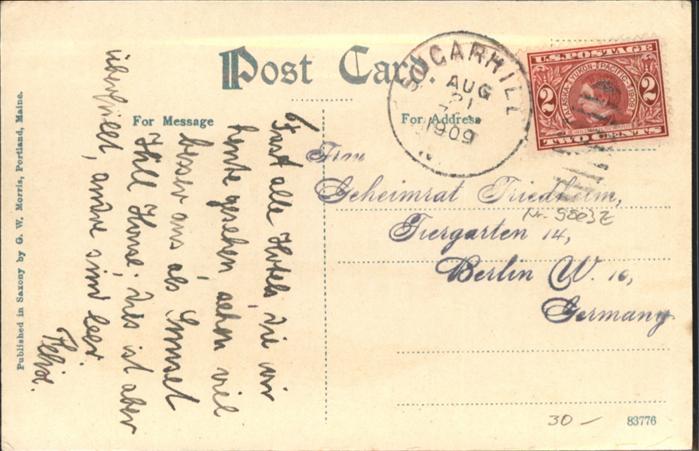 Post Card.
For Message
For Address
SUGAR HILL
AUG
21
1909
U.S. POSTAGE
ALASKA YUKON PACIFIC 1909
2 2
TWO CENTS
Fast alle Hotels die wir
heute gesehen, sehen viel
besser aus als Sunset
Hill House; dies ist aber
überfüllt, andre sind leer.
Felix.
Frau
Geheimrat Friedheim,
Tiergarten 14,
Berlin W. 16,
Germany
30 –
83776
Published in Saxony by G. W. Morris, Portland, Maine.